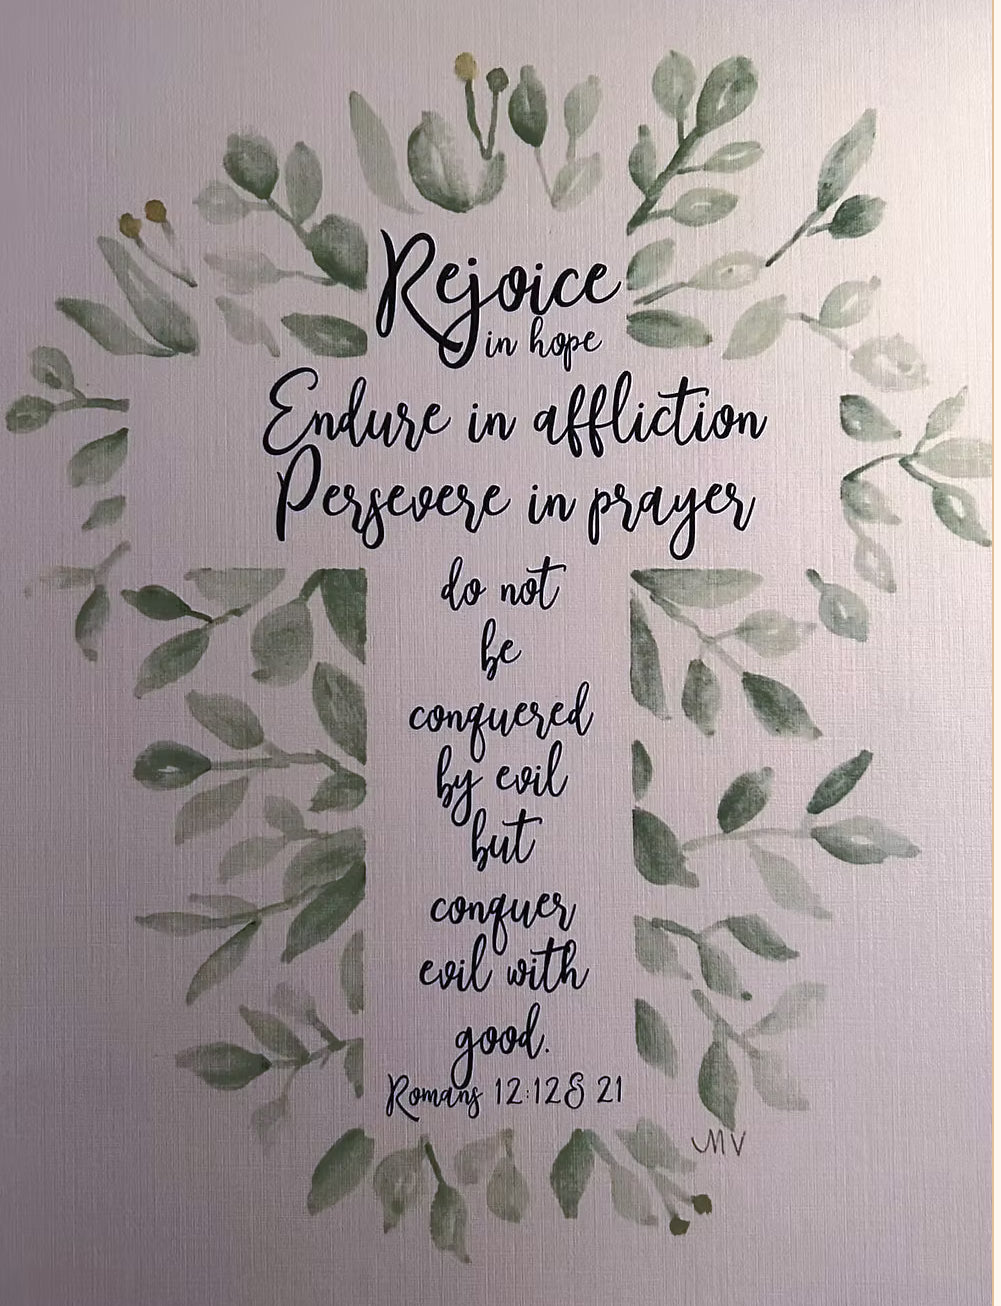 Rejoice
in hope
Endure in affliction
Persevere in prayer
do not
be
conquered
by evil
but
conquer
evil with
good.
Romans 12:12 & 21
MV